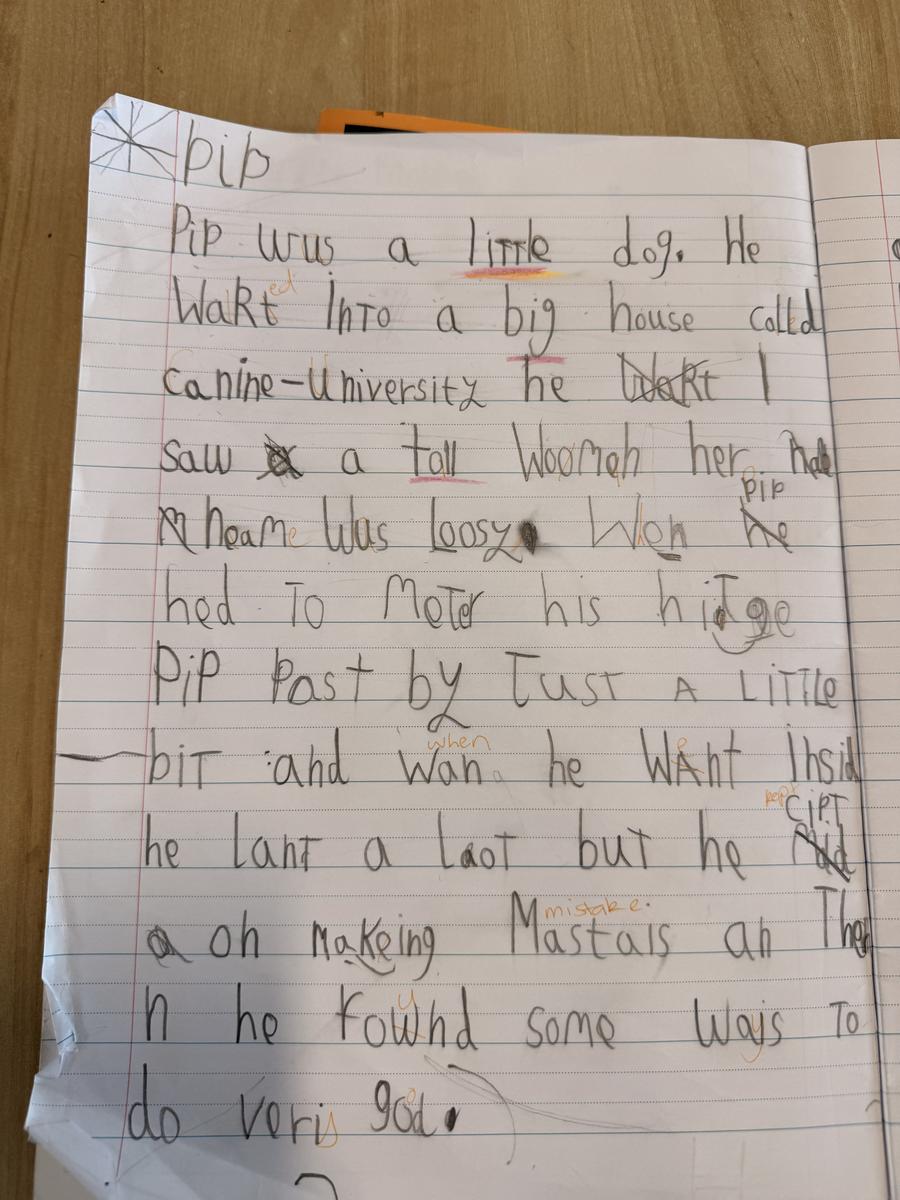 pip
Pip wus a little dog. He
ed
Wakt into a big house calld
canine-University he Wakt I
saw a tall Wooman her
pip
neame Was Loosy. Wen he
hed To Moter his hidge
Pip Past by Tust A LiTTLE
when
biT and Wan he WAnt insid
kept CiPT
he Lant a LaoT but he
mistake.
on makeing Mastais an The
n he Fownd some Ways To
do veriy good.